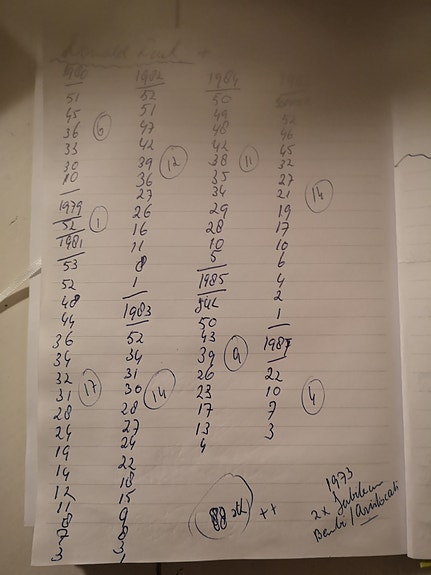 Donald Duck +
1980
51
45
36
33
30
10
6
1979
52
1
1981
53
52
48
44
36
34
32
31
28
24
19
14
12
11
8
7
3
17
1982
52
51
47
42
39
36
27
26
16
11
8
1
12
1983
52
34
31
30
28
27
24
22
18
15
9
8
3
1
14
1984
50
49
48
42
38
35
34
29
28
10
5
11
1985
50
43
39
26
23
17
13
4
9
52
46
45
32
27
21
19
17
10
6
4
2
1
14
1987
22
10
7
3
4
++
1973
2x Jubileum
Bambi / Aristocati